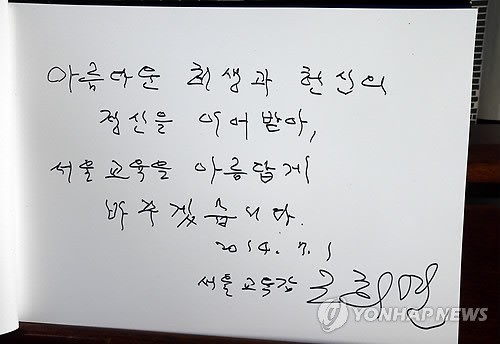 아름다운 희생과 헌신의
정신을 이어받아,
서울교육을 아름답게
바꾸겠습니다.
2014. 7. 1
서울 교육감 조희연
YONHAPNEWS